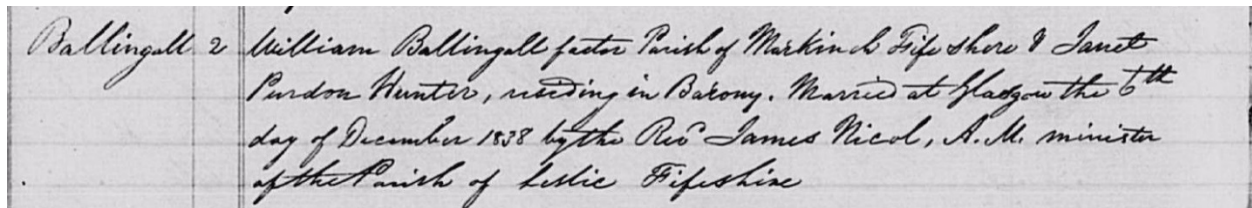 Ballingall 2 William Ballingall factor Parish of Markinch Fife Shere & Janet
Purdon Hunter, residing in Barony. Married at Glasgow the 6th
day of December 1838 by the Revd James Nicol, A.M. minister
of the Parish of Leslie Fifeshire